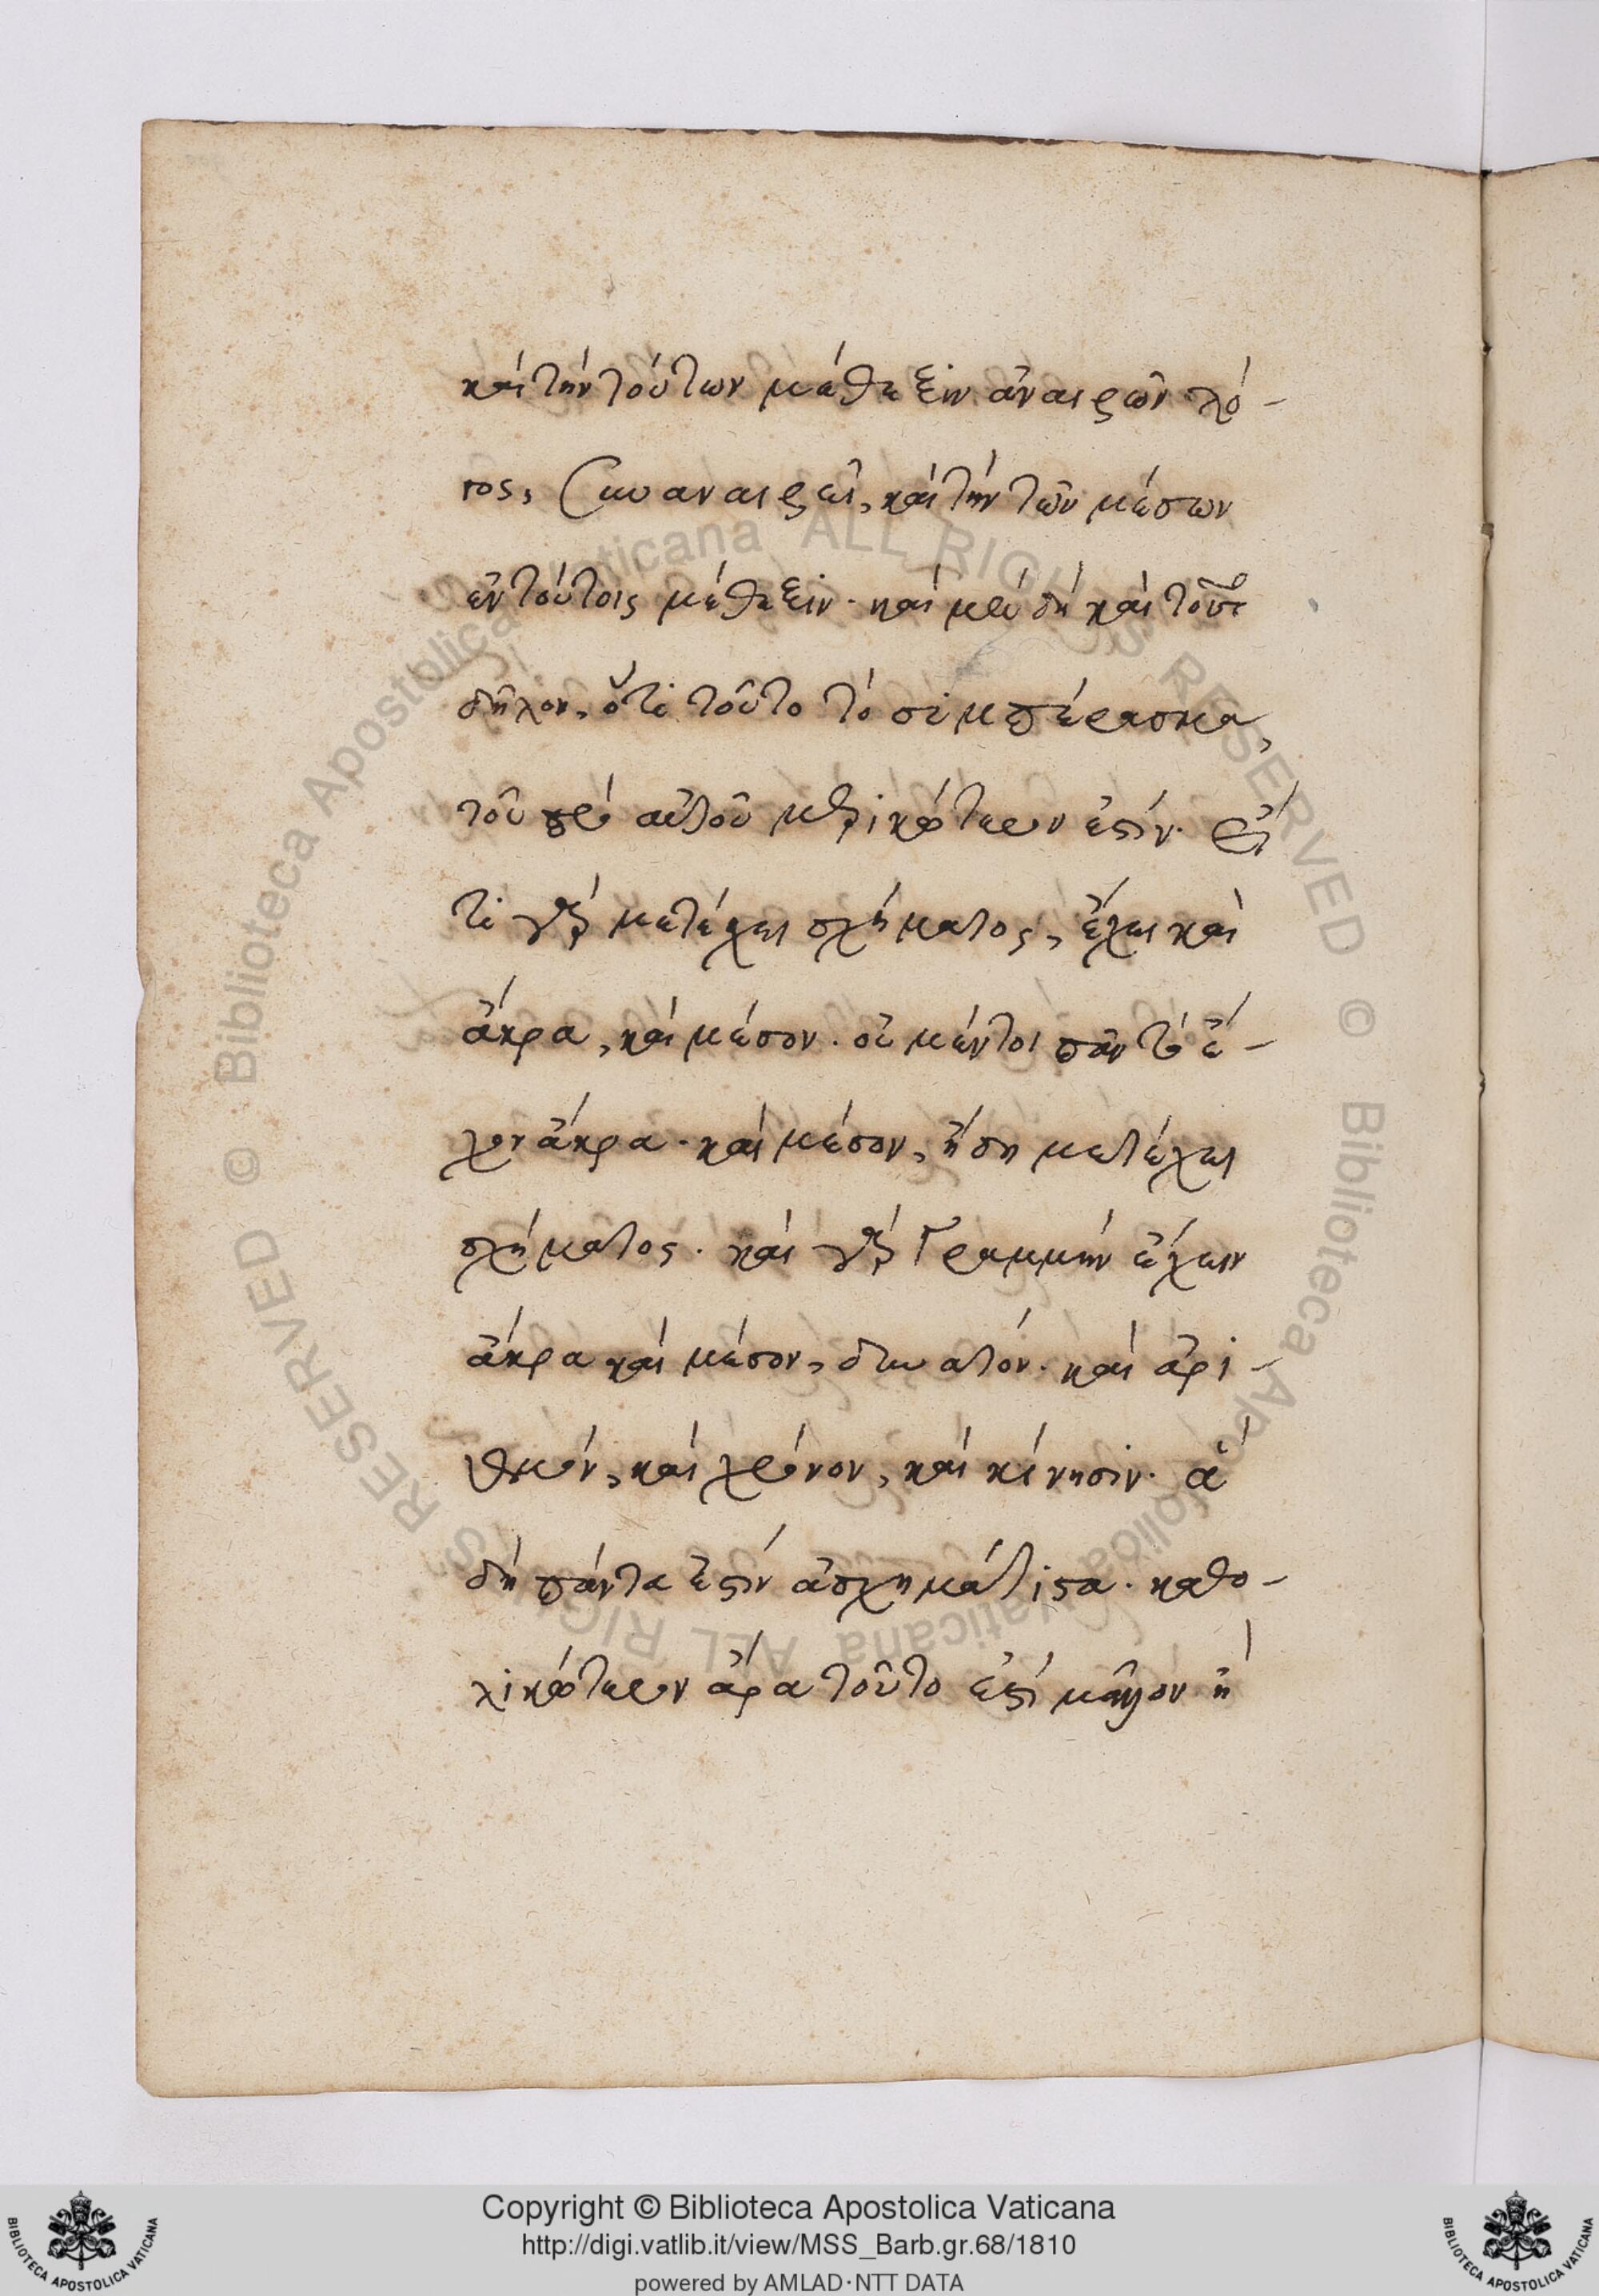 καὶ τὴν τούτων μέθεξιν ἀναιρῶν λό-
γος, συναναιρεῖ, καὶ τὴν τῶν μέσων
ἐν τούτοις μέθεξιν. καὶ μὴν δὴ καὶ τοῦτο
δῆλον, ὅτι τοῦτο τὸ συμπέρασμα,
τοῦ πρὸ αὐτοῦ μερικώτερον ἐστίν. εἴ
τι γὰρ μετέχει σχήματος, ἔχει καὶ
ἄκρα, καὶ μέσον. οὐ μέντοι πᾶν τὸ ἔ-
χον ἄκρα. καὶ μέσον, ἤδη μετέχει
σχήματος. καὶ γὰρ γραμμὴν ἔχειν
ἄκρα καὶ μέσον, δυνατόν. καὶ ἀρι-
θμὸν, καὶ χρόνον, καὶ κίνησιν. ἃ
δὴ πάντα ἐστὶν ἀσχημάτιστα. καθο-
λικώτερον ἄρα τοῦτο ἐστὶ μᾶλλον ἢ
Copyright © Biblioteca Apostolica Vaticana
http://digi.vatlib.it/view/MSS_Barb.gr.68/1810
powered by AMLAD·NTT DATA
BIBLIOTECA APOSTOLICA VATICANA
BIBLIOTECA APOSTOLICA VATICANA
© Biblioteca Apostolica Vaticana ALL RIGHTS RESERVED
© Biblioteca Apostolica Vaticana ALL RIGHTS RESERVED